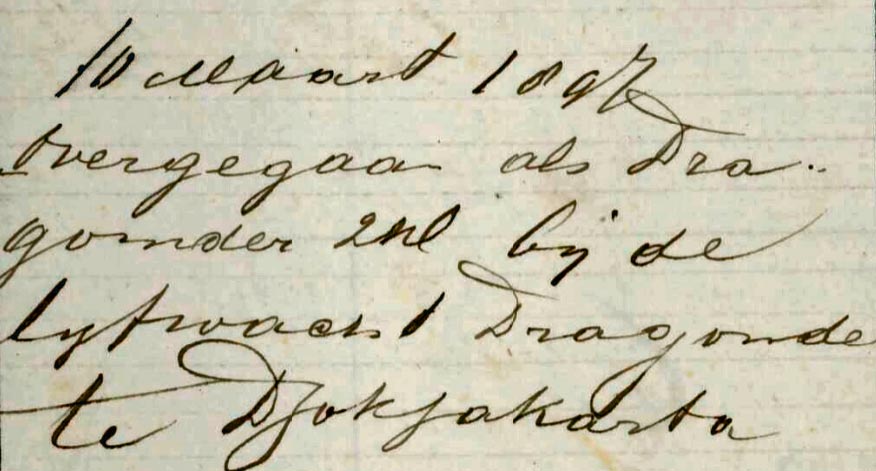 10 Maart 1897
overgegaan als Dra-
gonder 2kl bij de
lyfwacht Dragonde
te Djokjakarta